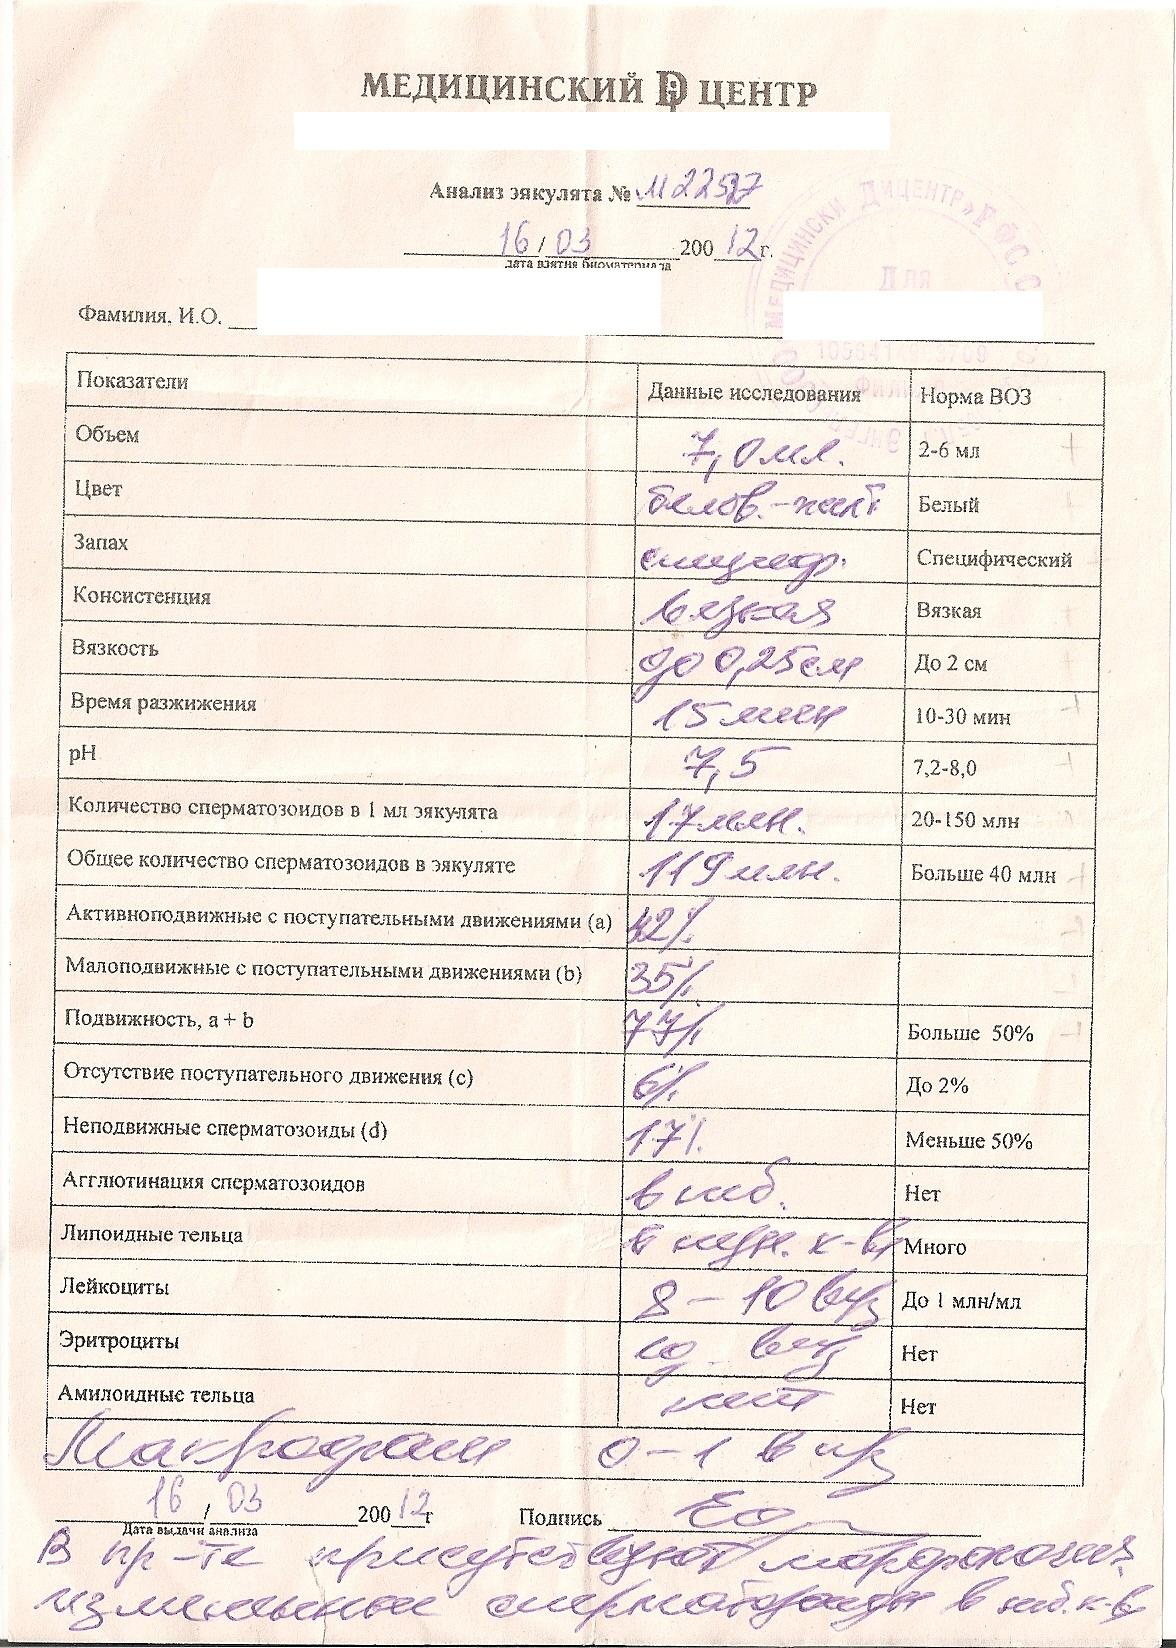 МЕДИЦИНСКИЙ Di ЦЕНТР
Анализ эякулята № М22597
16 / 03 200 12 г.
дата взятия биоматериала
МЕДИЦИНСКИ ДИЦЕНТР»
ДЛЯ
Фамилия, И.О.
Показатели Данные исследования Норма ВОЗ
Объем 7,0 мл. 2-6 мл +
Цвет белов.-желт. Белый +
Запах специф. Специфический
Консистенция вязкая Вязкая +
Вязкость до 0,25 см До 2 см +
Время разжижения 15 мин 10-30 мин +
pH 7,5 7,2-8,0 +
Количество сперматозоидов в 1 мл эякулята 17 млн. 20-150 млн
Общее количество сперматозоидов в эякуляте 119 млн. Больше 40 млн +
Активноподвижные с поступательными движениями (a) 42%
Малоподвижные с поступательными движениями (b) 35%
Подвижность, a + b 77% Больше 50%
Отсутствие поступательного движения (c) 6% До 2%
Неподвижные сперматозоиды (d) 17%. Меньше 50%
Агглютинация сперматозоидов в неб. Нет
Липоидные тельца в к-ве Много
Лейкоциты 8 – 10 в п/з До 1 млн/мл
Эритроциты ед. в п/з Нет
Амилоидные тельца нет Нет
Макрофаги 0 – 1 в п/з
16 / 03 200 12 г Подпись
Дата выдачи анализа
В пр-те присутствуют морфологич.
измененные сперматозоиды в неб. к-ве